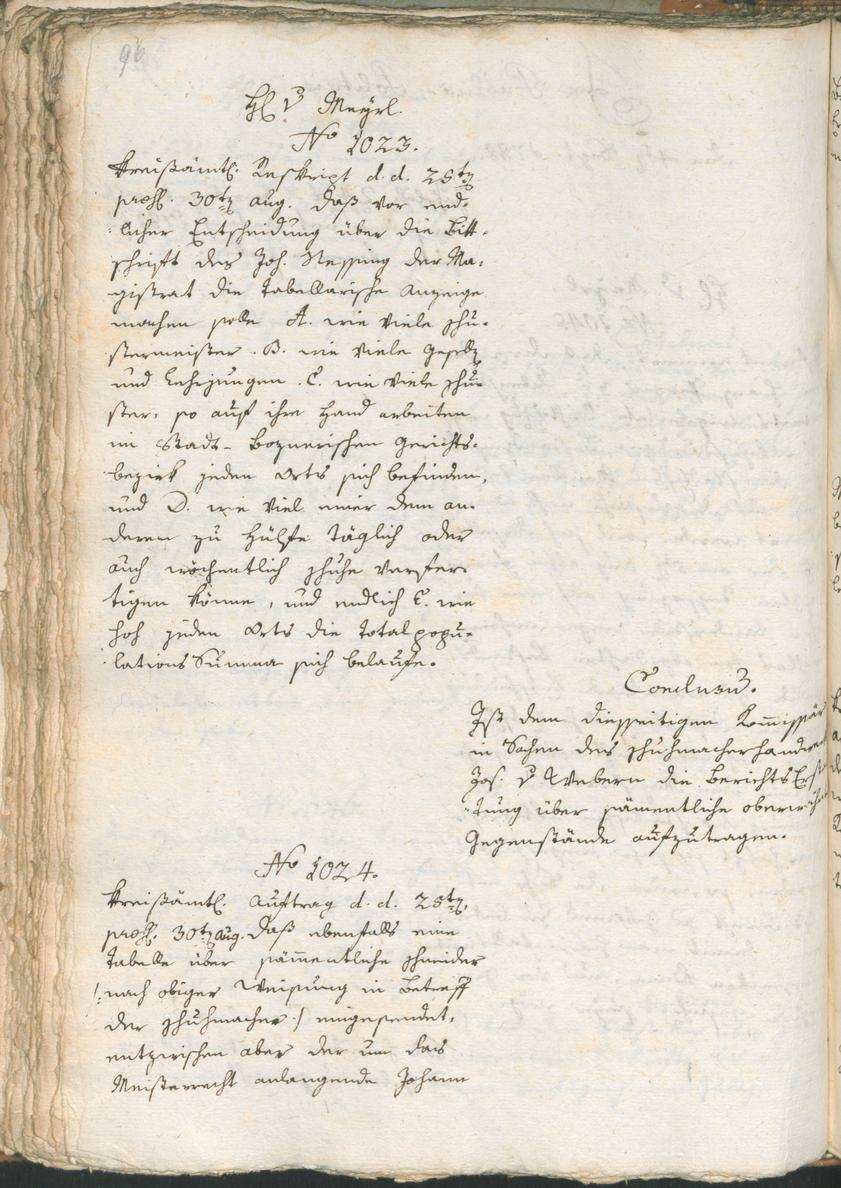 96
H v Meyrl.
No 1023.
Kreisämtl. Reskript d. d. 28ten
praes. 30ten aug. daß vor end-
licher Entscheidung über die Bitt-
schrift des Joh. Nessing der Ma-
gistrat die tabellarische Anzeige
machen solle A. wie viele Schu-
stermeister. B. wie viele Gesellen
und Lehrjungen. C. wie viele Schu-
ster, so auf ihre Hand arbeiten
im Stadt- Boznerischen Gerichts-
bezirk jeden Orts sich befinden,
und D. wie viel einer dem an-
deren zu Hülfe täglich oder
auch wöchentlich Schuhe verfer-
tigen könne, und endlich E. wie
hoch jeden Orts die total popu-
lations Summa sich belaufe.
Conclusum.
Ist dem diesseitigen Kommissär
in Sachen des Schuhmacherhandwerk
Jos. v Webern die Berichts Erstat-
tung über sämentliche oberwähnte
Gegenstände aufzutragen.
No 1024.
Kreisämtl. Auftrag d. d. 28ten,
praes. 30ten aug. daß ebenfalls eine
Tabelle über sämmentliche Schneider
/: nach obiger Weisung in Betreff
der Schuhmacher :/ eingesendet,
entzwischen aber der um das
Meisterrecht anlangende Johann